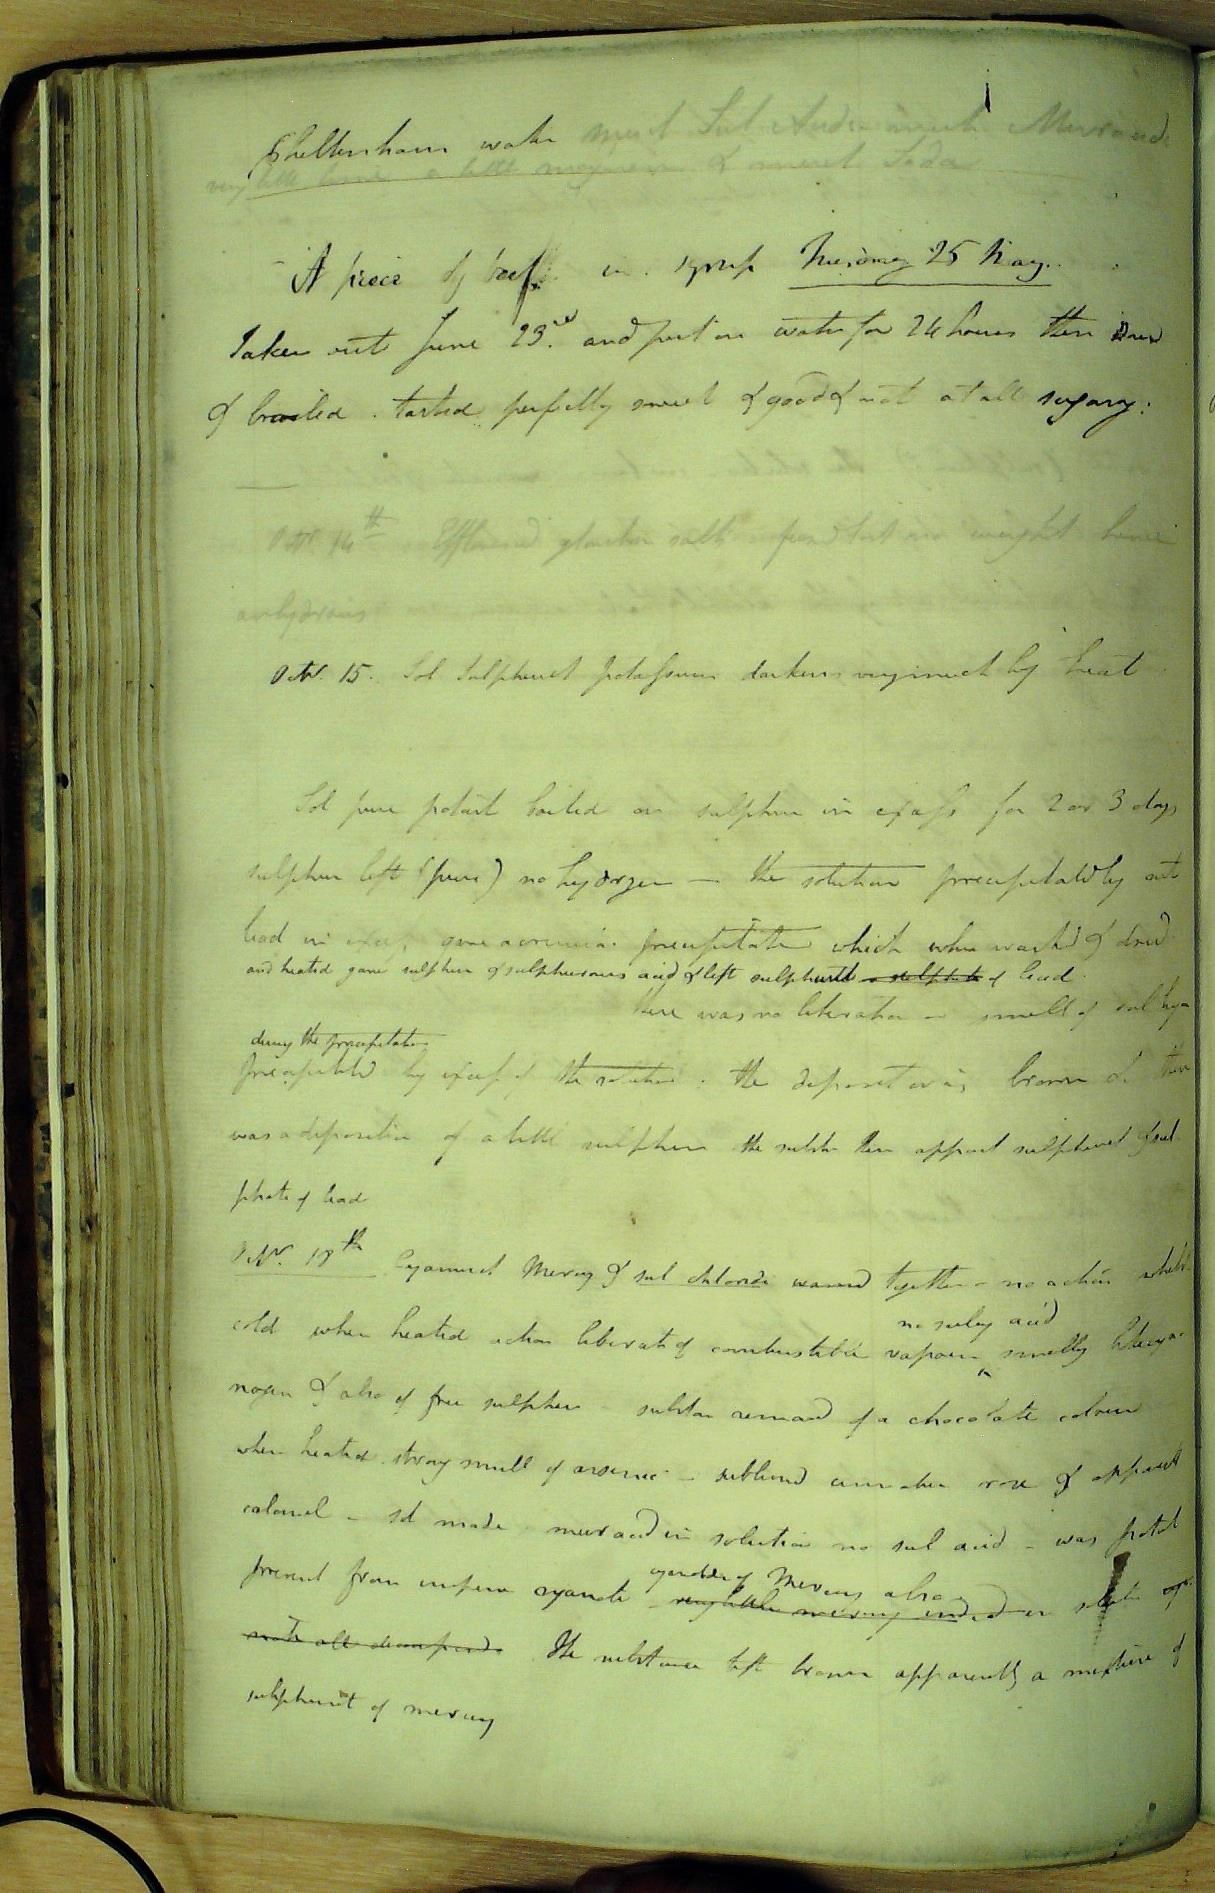 Cheltenham water much Sul Mur acid
very little lime a little magnesia & much Soda
A piece of beef in syrup Tuesday 25 May.
Taken out June 23rd. and put in water for 24 hours then
& broiled. tasted perfectly sweet & good & not at all sugary.
Octr. 14th Effloresced glauber salts lost no weight hence
anhydrous
Octr. 15. Sol Sulphuret potassium darkens very much by heat
Sol pure potash boiled on sulphur in excess for 2 or 3 days
sulphur left (pure) no hydrogen — the solution precipitated by
lead in excess gave a precipitate which when washed & dried
and heated gave sulphur & sulphureous acid & left sulphuret a sulphate of lead
there was no liberation or smell of sul hyd
during the precipitation
Precipitated by excess of the solution. the deposit was brown & there
was a deposition of a little sulphur the substa then appeard sulphuret & sul
phate of lead
Octr. 18th Cyanuret Mercury & sul chloride warmed together - no action whilst
cold when heated action liberat of combustible vapour smelling
no sulcy acid
nogen & also of free sulphur - substan remaind of a chocolate colour
when heated strong smell of arsenic - sublimed cinnabar rose & apparent
calomel - sol made mur acid in solution no sul acid - was
present from impure cyanate very little mercury indeed in
cyanide of Mercury also
note all decomposed. The substance left brown apparently a mixture of
sulphuret of mercury